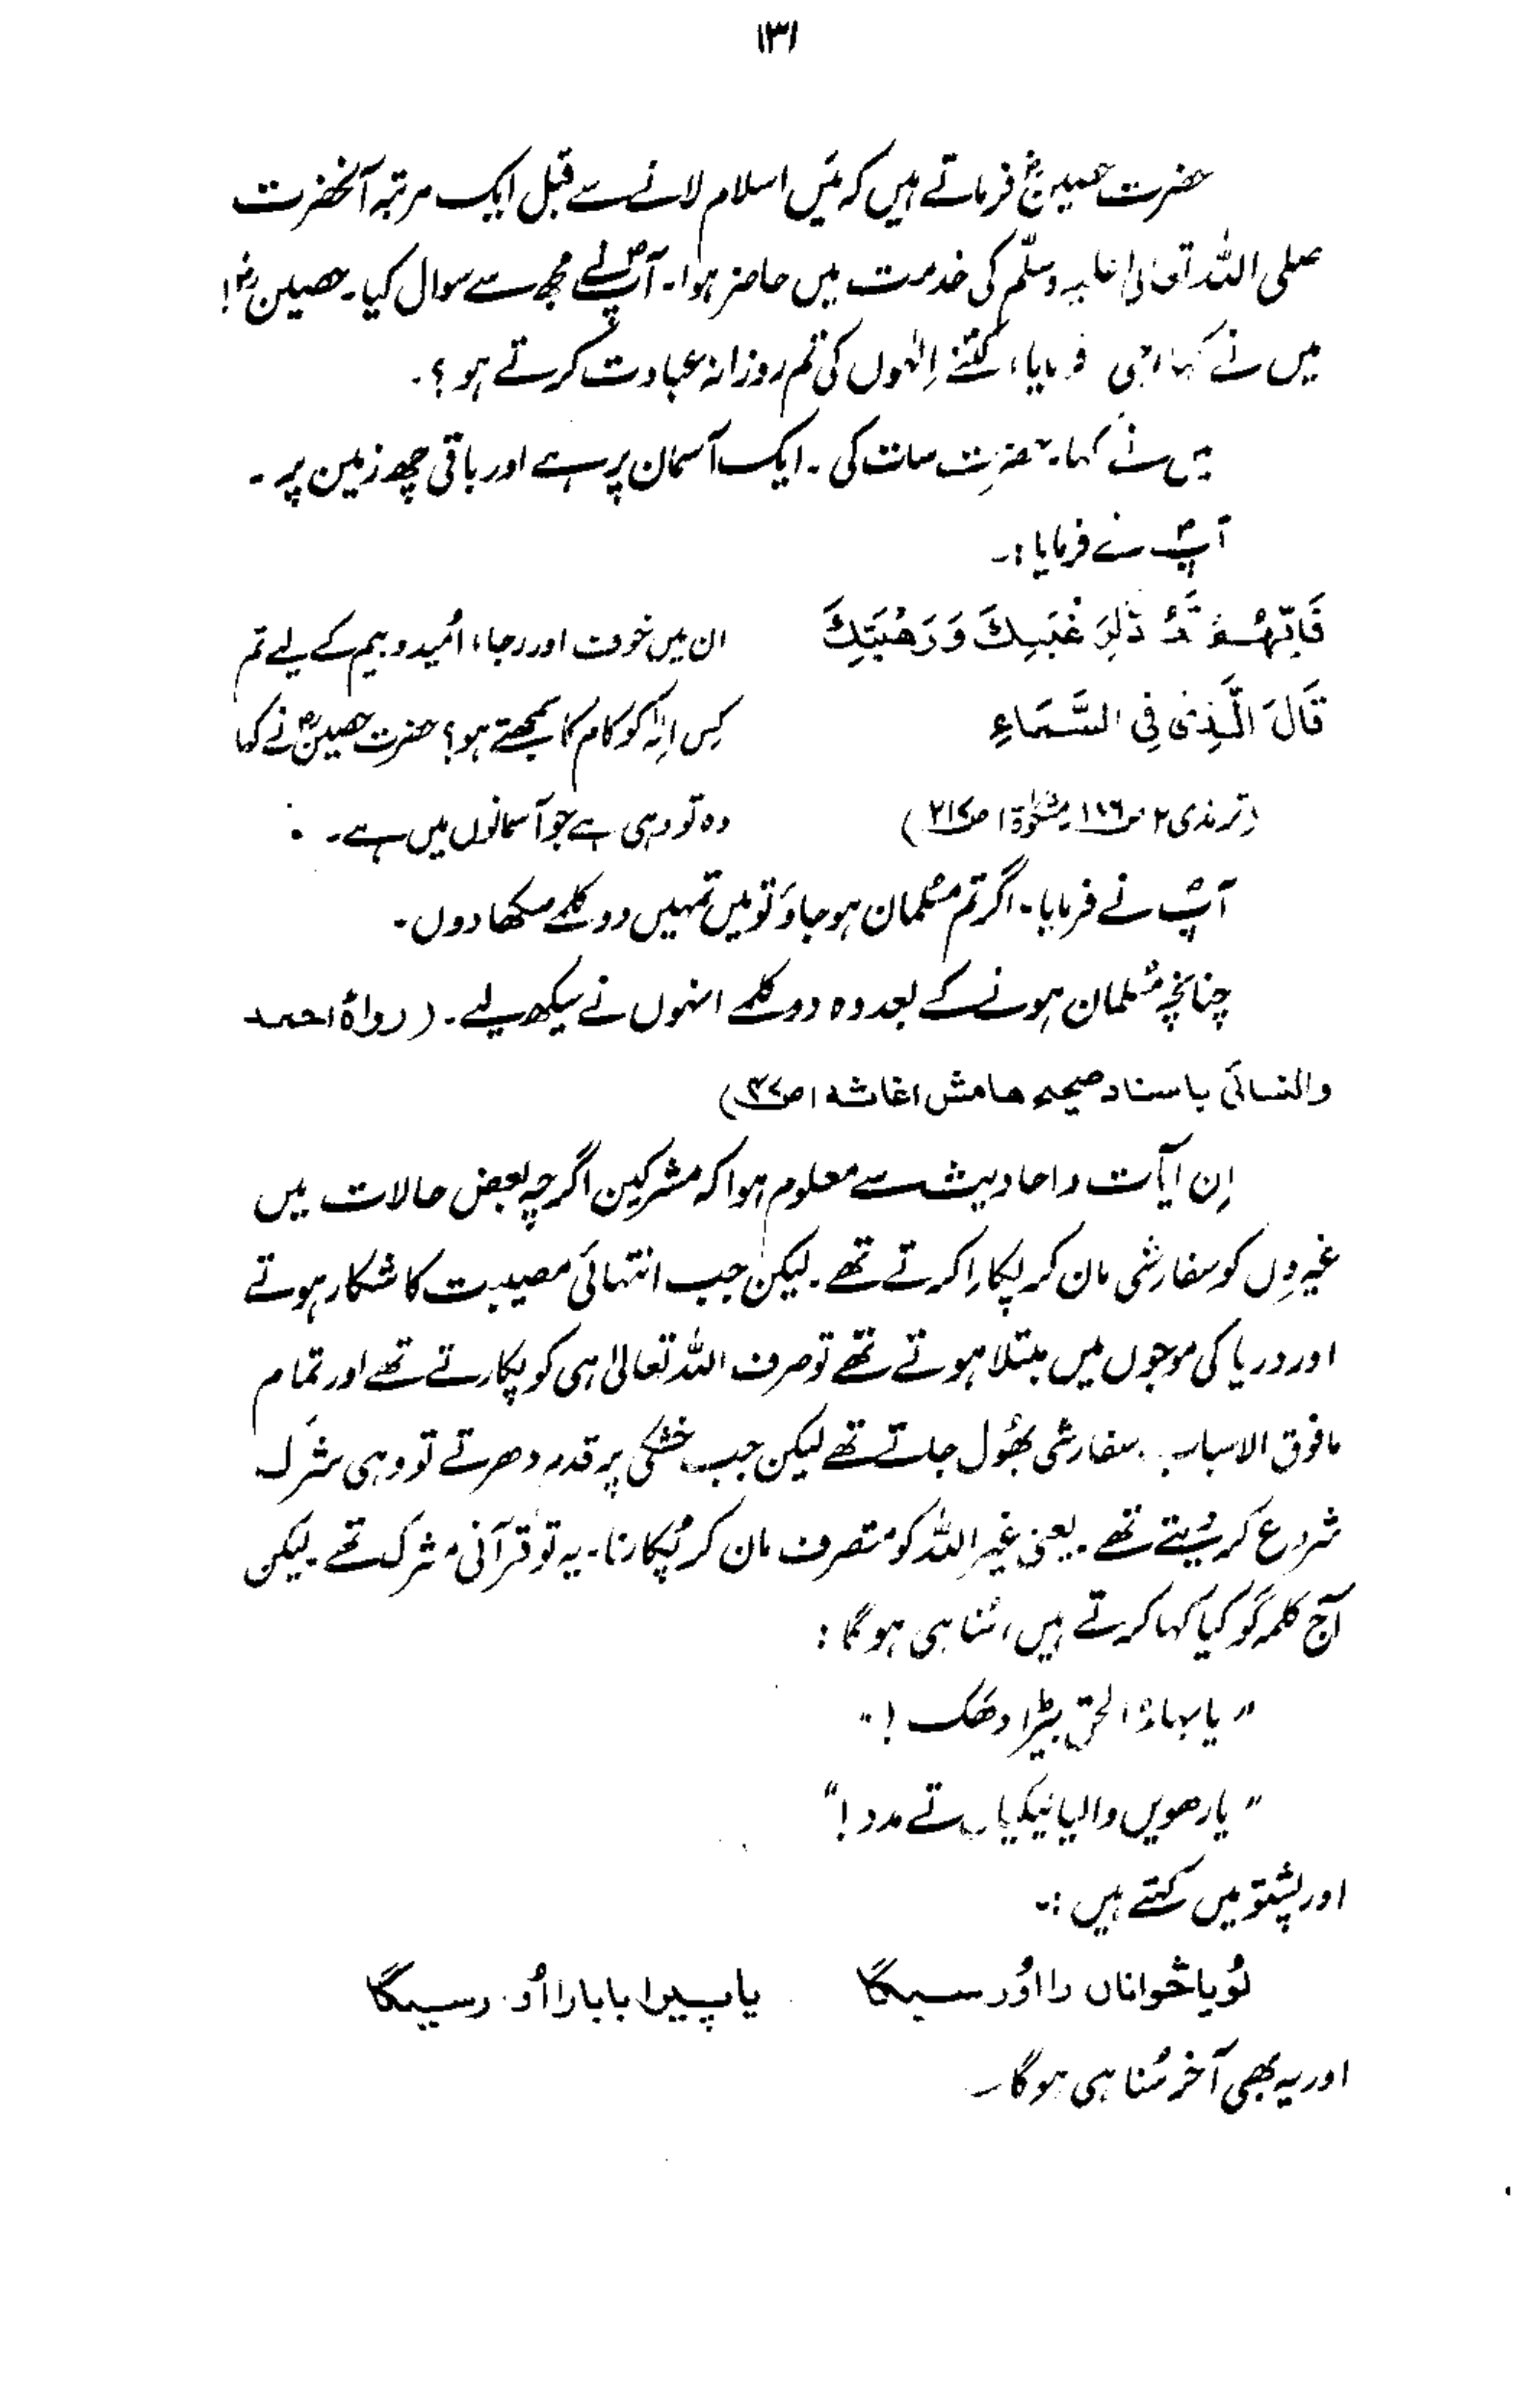 ۱۳۱
حضرت حصینؓ فرماتے ہیں کہ مَیں اسلام لانے سے قبل ایک مرتبہ آنحضرت
صلی اللہ تعالیٰ علیہ وسلّم کی خدمت میں حاضر ہوا۔ آپؐ نے مجھ سے سوال کیا۔ حصینؓ!
میں نے کہا، جی فرمایا، کتنے اِلٰہوں کی تم روزانہ عبادت کرتے ہو؟۔
میں نے کہا۔ حضرت سات کی۔ ایک آسمان پر ہے اور باقی چھ زمین پر۔
آپؐ نے فرمایا:۔
فَاَيُّهُمْ تَعُدُّ لِرَغْبَتِكَ وَرَهْبَتِكَ ان میں خوف اور رجاء، اُمید و بیم کے لیے تم
قَالَ الَّذِیْ فِی السَّمَاءِ کِس اِلٰہ کو کام کا سمجھتے ہو؟ حضرت حصینؓ نے کہا
(ترمذی ۲ ص۱۸۶ مشکوٰۃ ۱ ص۲۱۷) وہ تو وہی ہے جو آسمانوں میں ہے۔
آپؐ نے فرمایا۔ اگر تم مُسلمان ہو جاؤ تو میں تمہیں دو کلمے سکھا دوں۔
چنانچہ مُسلمان ہونے کے بعد وہ دو کلمے انہوں نے سیکھ لیے۔ (رواہُ احمد
والنسائی باسناد صحیح ھامش اغاثہ ۱ ص۳۷)
اِن آیات و احادیث سے معلوم ہوا کہ مشرکین اگرچہ بعض حالات میں
غیروں کو سفارشی مان کر پکارا کرتے تھے۔ لیکن جب انتہائی مصیبت کا شکار ہوتے
اور دریا کی موجوں میں مبتلا ہوتے تھے تو صرف اللہ تعالیٰ ہی کو پکارتے تھے اور تمام
مافوق الاسباب سفارشی بھُول جاتے تھے لیکن جب خشکی پر قدم دھرتے تو وہی شرک
شروع کر دیتے تھے۔ یعنی غیر اللہ کو متصرف مان کر پُکارنا۔ یہ تو قرآنی مشرک تھے۔ لیکن
آج کلمہ گو کیا کہا کرتے ہیں، سُنا ہی ہو گا:
”یا بہاؤ الحق بیڑا دھک!“
”یارھویں والیا نیکیاں تے مدد!“
اور پشتو میں کہتے ہیں:۔
لُویا خوانان را اوُرسیگا یا پیرا بابا را اوُرسیگا
اور یہ بھی آخر سُنا ہی ہو گا۔